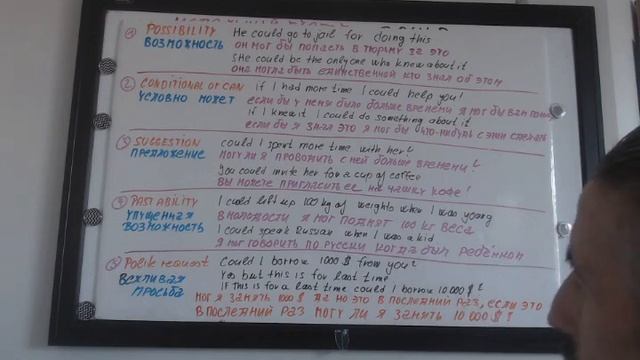 ① POSSIBILITY He could go to jail for doing this
ВОЗМОЖНОСТЬ он мог бы попасть в тюрьму за это
She could be the only one who knew about it
она могла быть единственной кто знал об этом
② CONDITIONAL OF CAN if I had more time I could help you!
УСЛОВНО МОЖЕТ если бы у меня было больше времени я мог бы вам
if I knew it I could do something about it
если бы я знал это я мог бы что-нибудь с этим сделать
③ SUGGESTION could I spent more time with her?
могу ли я проводить с ней больше времени?
You could invite her for a cup of coffee
вы можете пригласить ее на чашку кофе!
④ PAST ABILITY I could lift up 100 kg of weights when I was young
УПУЩЕННАЯ в молодости я мог поднят 100 кг веса
ВОЗМОЖНОСТЬ I could speak Russian when I was a kid
я мог говорить по русски когда был ребёнком
⑤ Polite request Could I borrow 1000 $ from you?
ВЕЖЛИВАЯ Yes but this is for last time
ПРОСЬБА If this is for a last time could I borrow 10 000 $?
мог я занять 1000 $ да но это в последний раз, если это
в последний раз могу ли я занять 10 000 $?